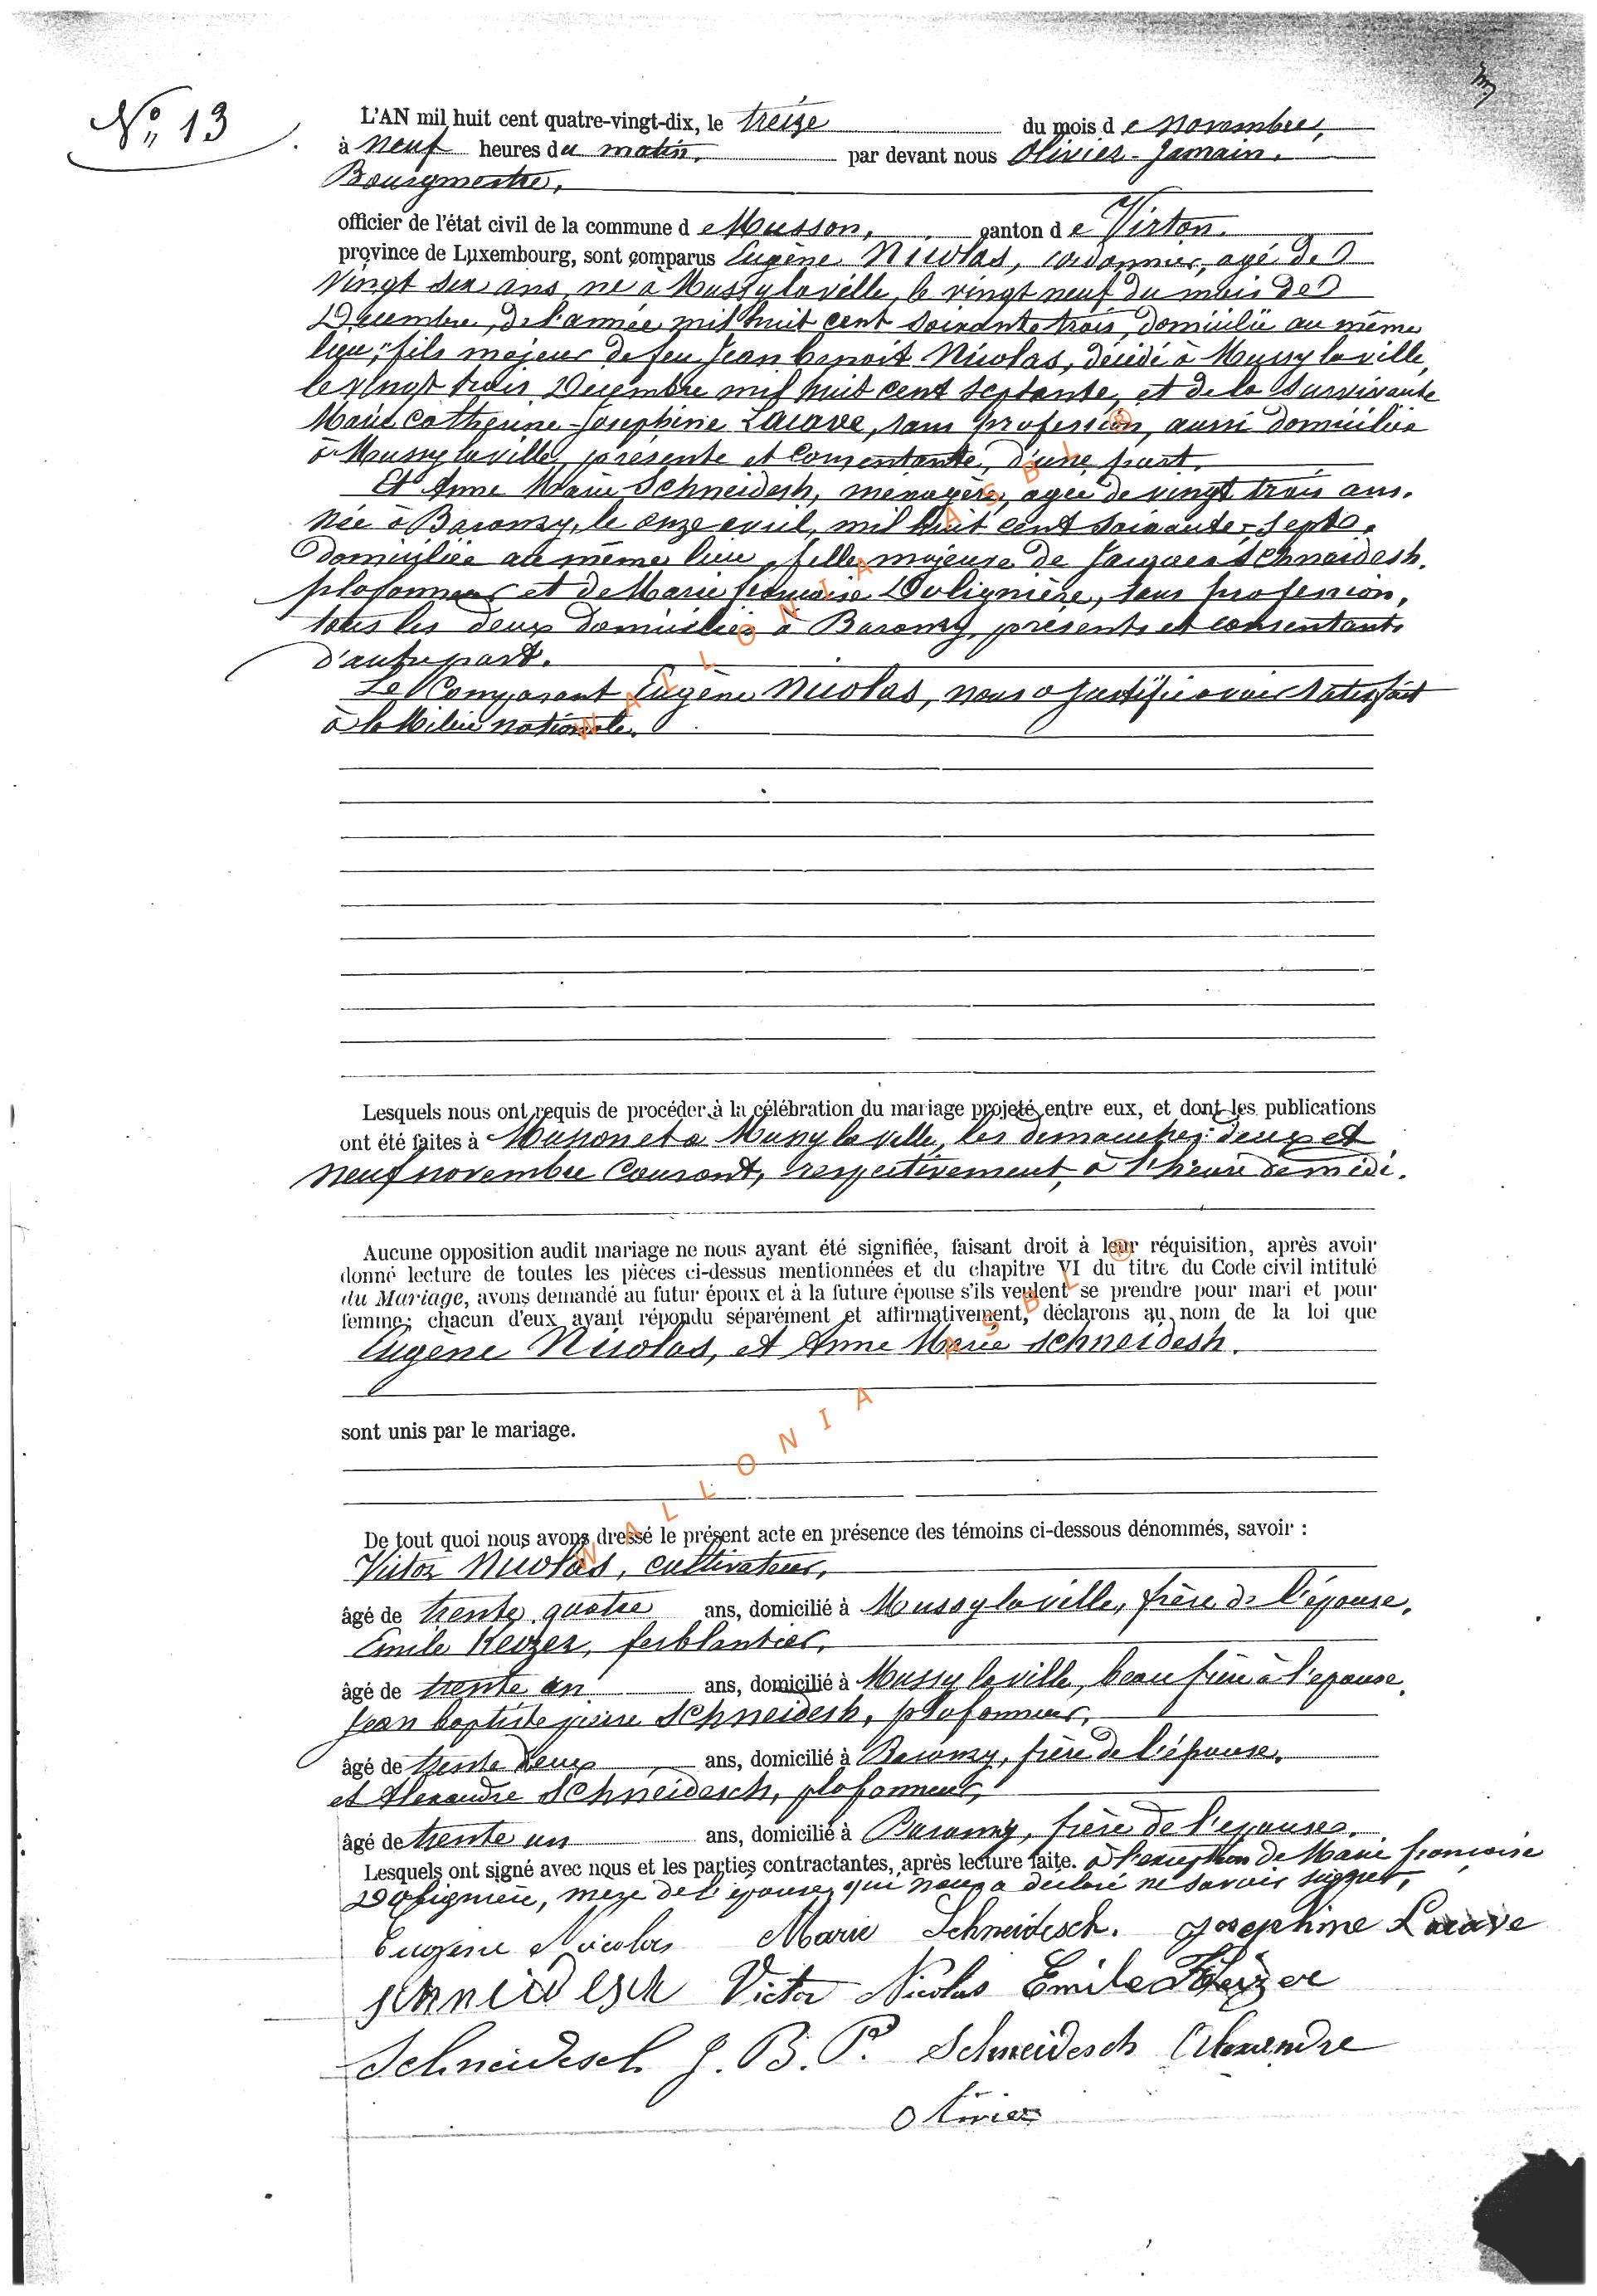 N° 13
L'AN mil huit cent quatre-vingt-dix, le treize du mois de novembre,
à neuf heures du matin, par devant nous Olivier Jamain,
Bourgmestre,
officier de l'état civil de la commune de Musson, canton de Virton,
province de Luxembourg, sont comparus Eugène Nicolas, cordonnier, agé de
Vingt six ans, né à Mussy la ville, le vingt neuf du mois de
Décembre, de l'année mil huit cent soixante trois, domicilié au même
lieu, fils majeur de feu Jean benoit Nicolas, décédé à Mussy la ville,
le vingt trois Décembre mil huit cent septante, et de la survivante
Marie Catherine Josephine Lacave, sans profession, aussi domiciliée
à Mussy la ville, présente et consentante, d'une part.
Et Anne Marie Schneidesh, ménagère, agée de vingt trois ans,
Née à Baranzy, le onze avril, mil huit cent soixante-sept,
domiciliée au même lieu, fille majeure de Jacques Schneidesh,
plafonneur et de Marie françoise Dolignière, sans profession,
tous les deux domiciliés à Baranzy, présents et consentants
d'autre part.
Le Comparant Eugène Nicolas, nous a justifié avoir satisfait
à la Milice nationale.
Lesquels nous ont requis de procéder à la célébration du mariage projeté entre eux, et dont les publications
ont été faites à Musson et à Mussy la ville, les dimanches deux et
neuf novembre Courant, respectivement à l'heure de midi.
Aucune opposition audit mariage ne nous ayant été signifiée, faisant droit à leur réquisition, après avoir
donné lecture de toutes les pièces ci-dessus mentionnées et du chapitre VI du titre du Code civil intitulé
du Mariage, avons demandé au futur époux et à la future épouse s'ils veulent se prendre pour mari et pour
femme; chacun d'eux ayant répondu séparément et affirmativement, déclarons au nom de la loi que
Eugène Nicolas, et Anne Marie Schneidesh.
sont unis par le mariage.
De tout quoi nous avons dressé le présent acte en présence des témoins ci-dessous dénommés, savoir :
Victor Nicolas, cultivateur,
âgé de trente quatre ans, domicilié à Mussy la ville, frère de l'épouse,
Emile Keizer, ferblantier,
âgé de trente un ans, domicilié à Mussy la ville, beau frère à l'épouse,
Jean baptiste pierre Schneidesh, plafonneur,
âgé de trente deux ans, domicilié à Baranzy, frère de l'épouse,
et Alexandre Schneidesch, plafonneur,
âgé de trente un ans, domicilié à Baranzy, frère de l'épouse.
Lesquels ont signé avec nous et les parties contractantes, après lecture faite. à l'exception de Marie françoise
Dolignière, mère de l'épouse, qui nous a déclaré ne savoir signer,
Eugène Nicolas Marie Schneidesch. Josephine Lacave
Schneidesch Victor Nicolas Emile Keizer
Schneidesch J. B. P. Schneidesch Alexandre
Olivier
WALLONIA ASBL ®
WALLONIA ASBL ®